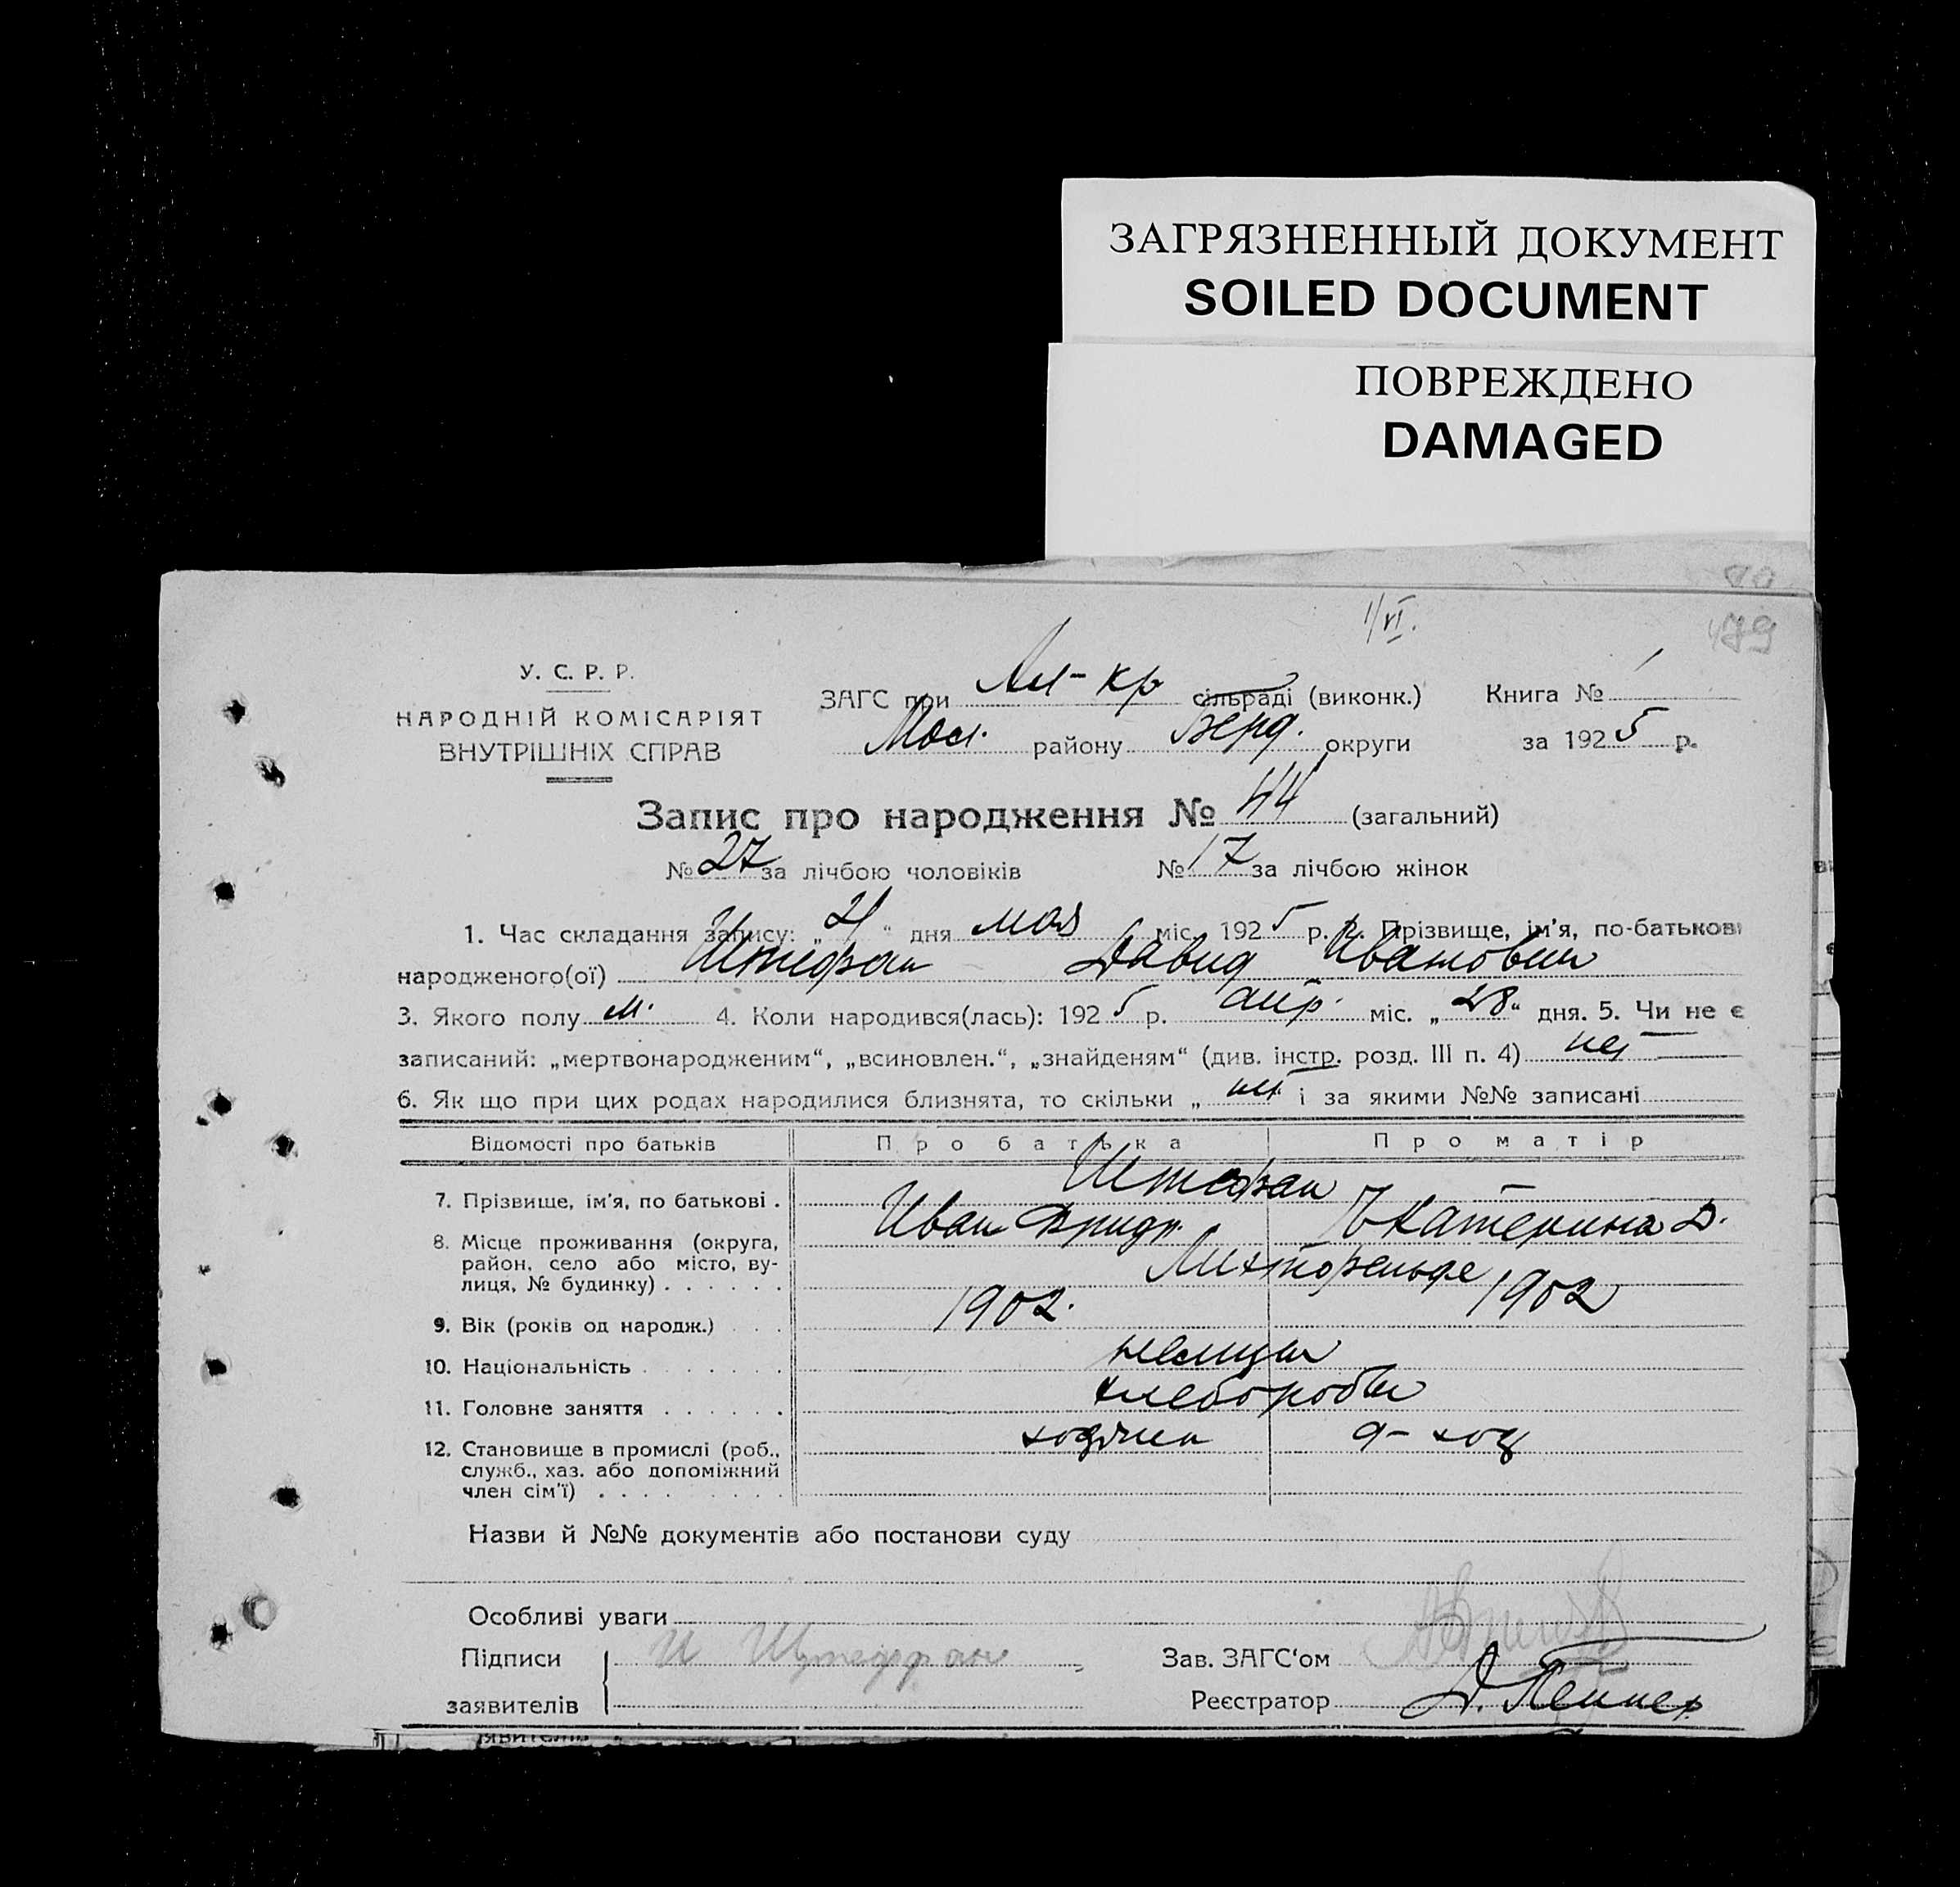 ЗАГРЯЗНЕННЫЙ ДОКУМЕНТ
SOILED DOCUMENT
ПОВРЕЖДЕНО
DAMAGED
1/VI.
79
У. С. Р. Р.
НАРОДНІЙ КОМІСАРІЯТ
ВНУТРІШНІХ СПРАВ
ЗАГС при Ал-Кр сільраді (виконк.) Книга № 1
Мол. району Берд. округи за 1925 р.
Запис про народження № 44 (загальний)
№ 27 за лічбою чоловіків № 17 за лічбою жінок
1. Час складання запису: „21" дня мая міс. 1925 р. 2. Прізвище, ім'я, по-батькові
народженого(ої) Штефан Давид Иванович
3. Якого полу м. 4. Коли народився(лась): 1925 р. апр. міс. „28" дня. 5. Чи не є
записаний: „мертвонародженим", „всиновлен.", „знайденям" (див. інстр. розд. III п. 4) нет
6. Як що при цих родах народилися близнята, то скільки „ нет і за якими №№ записані
Відомості про батьків Про батька Про матір
7. Прізвище, ім'я, по батькові . Штефан
Иван Фридр. Екатерина Д.
8. Місце проживання (округа, район, село або місто, вулиця, № будинку) . . . . . . Лихтфельде
9. Вік (років од народж.) . . . 1902. 1902
10. Національність . . . . . . . немцы
11. Головне заняття . . . . . . хлеборобы
12. Становище в промислі (роб., служб., хаз. або допоміжний член сім'ї) . . . . . . . . .
Назви й №№ документів або постанови суду
Особливі уваги
Підписи И Штеффан Зав. ЗАГС'ом
заявителів Реєстратор Д. Пеннер